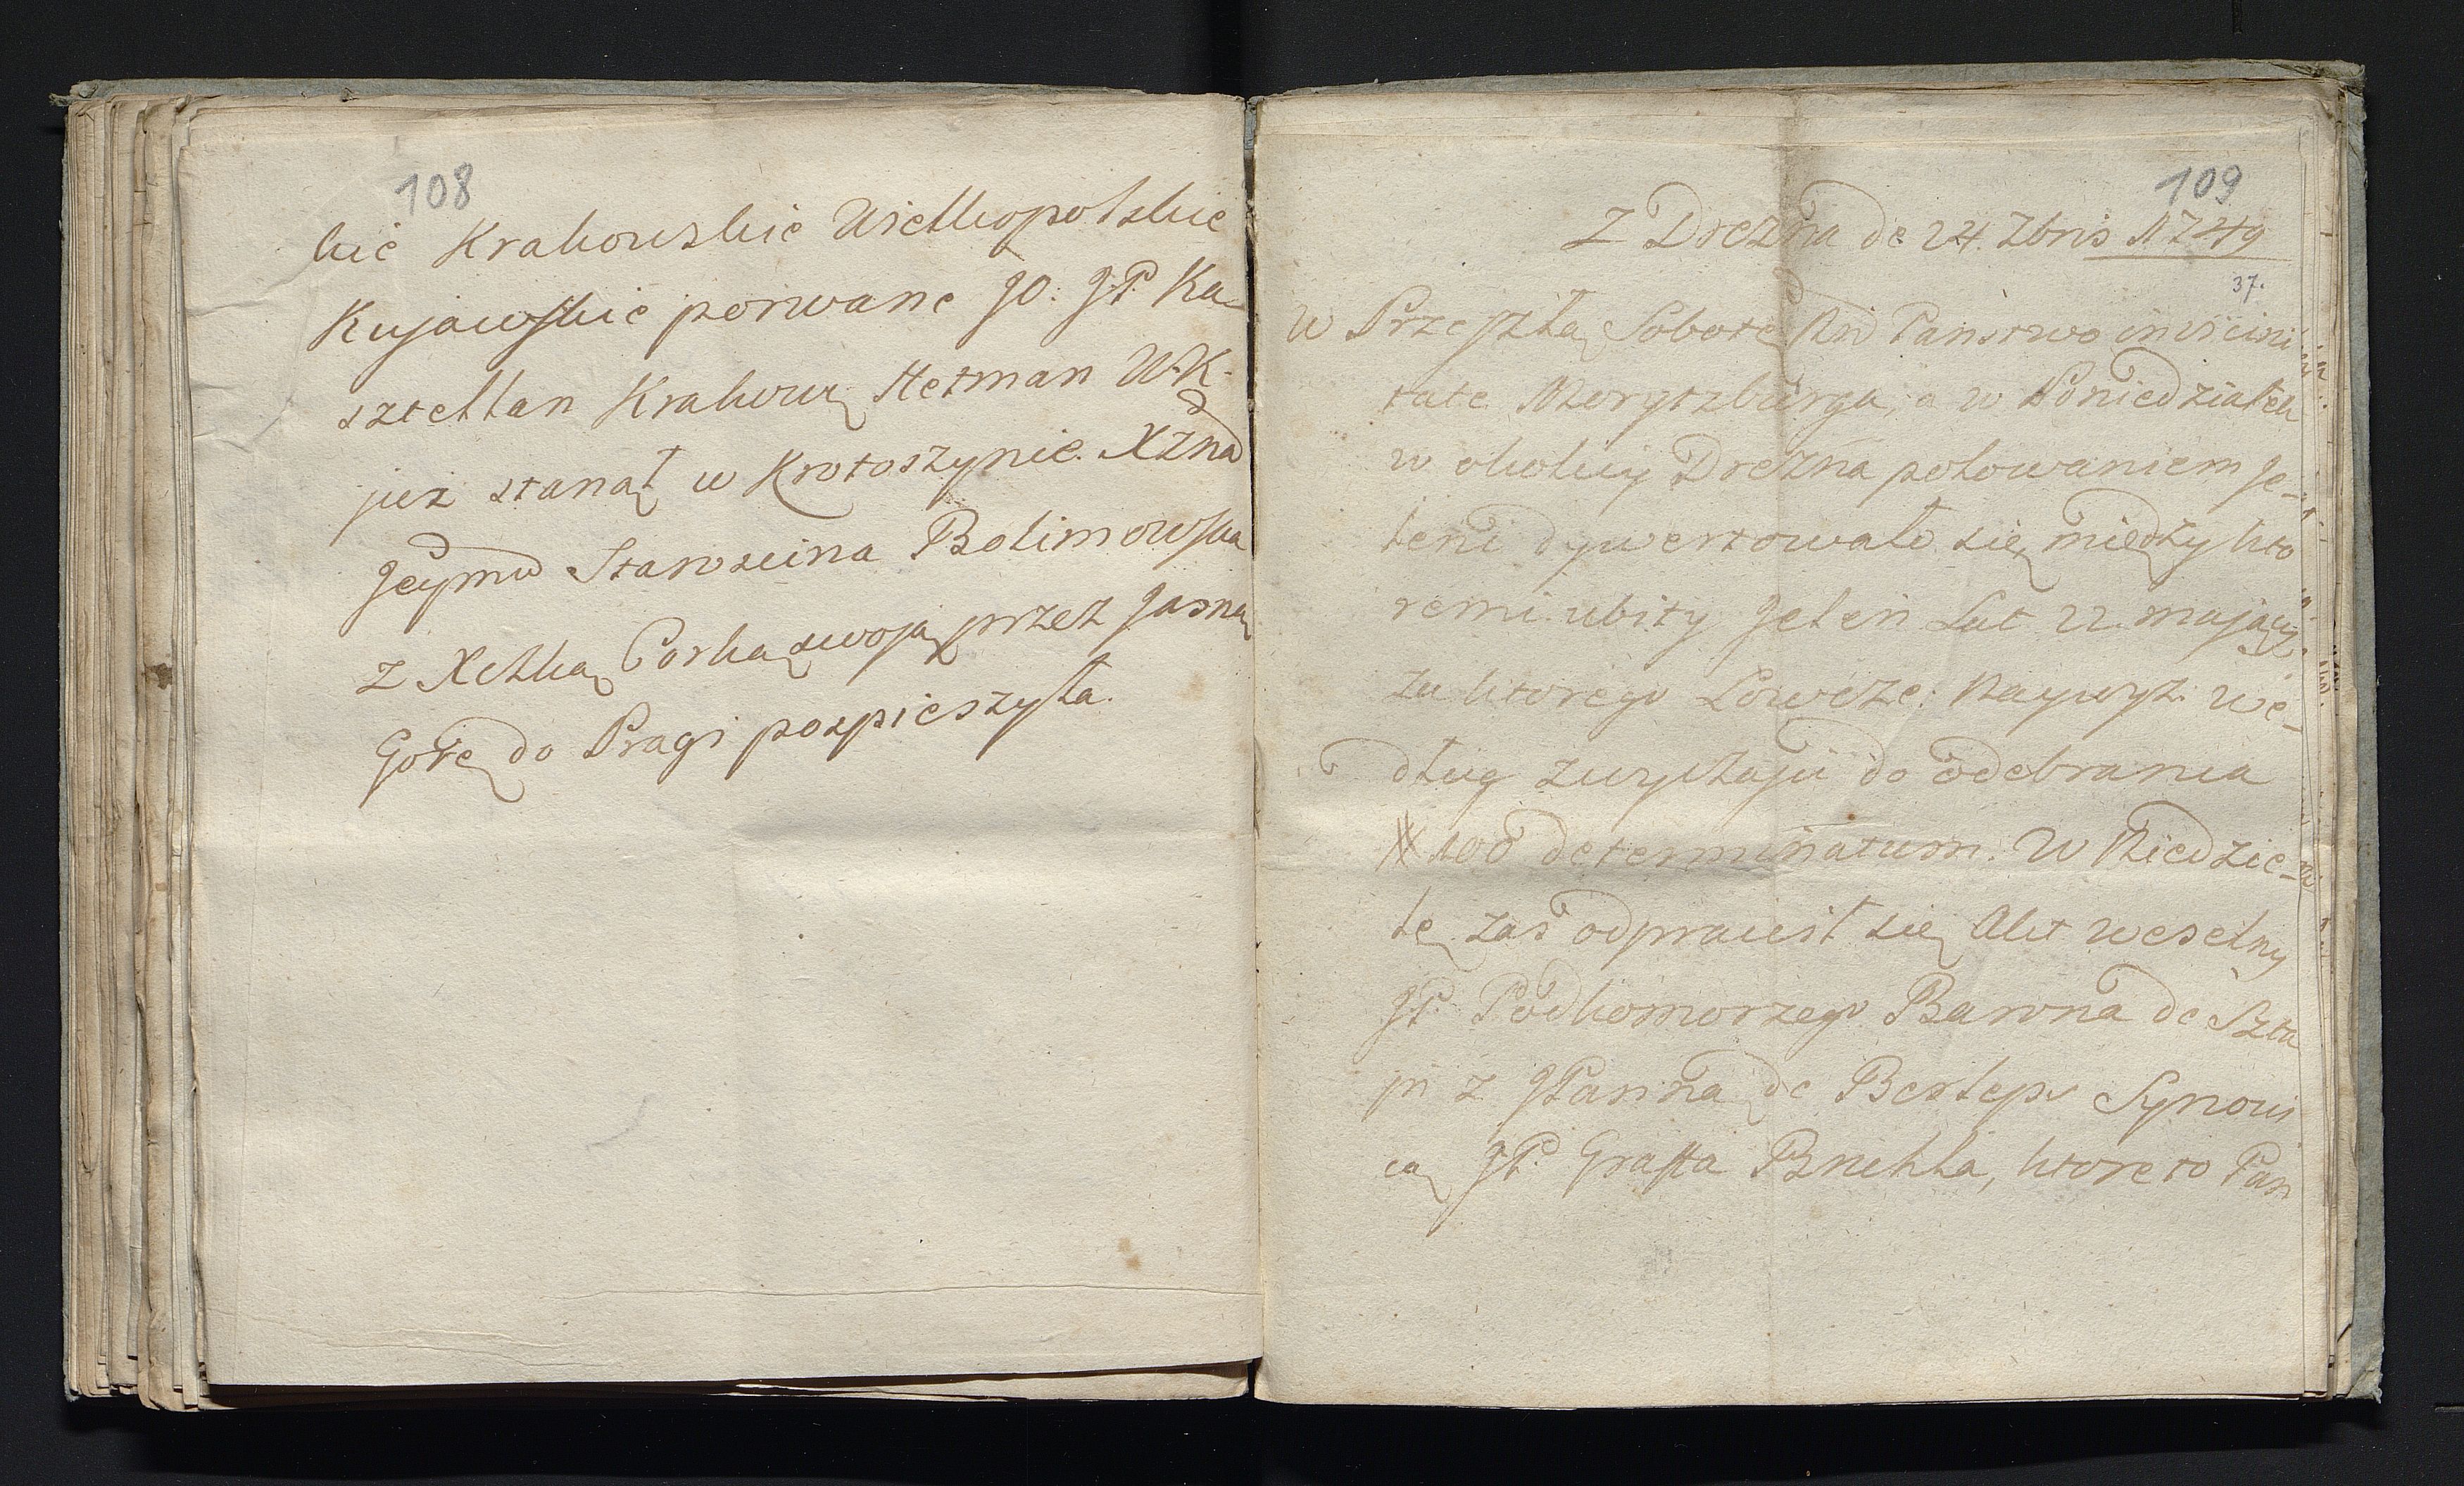 108
kie Krakowskie Wielkopolskie
Kujawskie porwane JO. J.P. Ka-
sztellan Krakowy Hetman W.K.
już stanął w Krotoszynie. XZna
Jeymć Starościna Bolimowska
z Xclką Corką swoją przez Jasną
Gorę do Pragi pospieszyła.
109
Z Drezna de 24. 7bris 1749
37.
W Przeszłą Sobotę Nń Państwo in vicini
tate Morytzburga, a w Poniedziałek
w okolicy Drezna polowaniem Je-
leni dywertowało się, między kto
remi ubity Jeleń Lat 22. mający
za ktorego Łowcze: Naywyż: we-
dług zwyczaju do odebrania
# 100 determinatum. W Niedzie-
lę zaś odprawił się Akt weselny
JP. Podkomorzego Barona de Szta
pi z JPanną de Besleps Synowi
cą JP. Graffa Bruhla, ktore to Pań